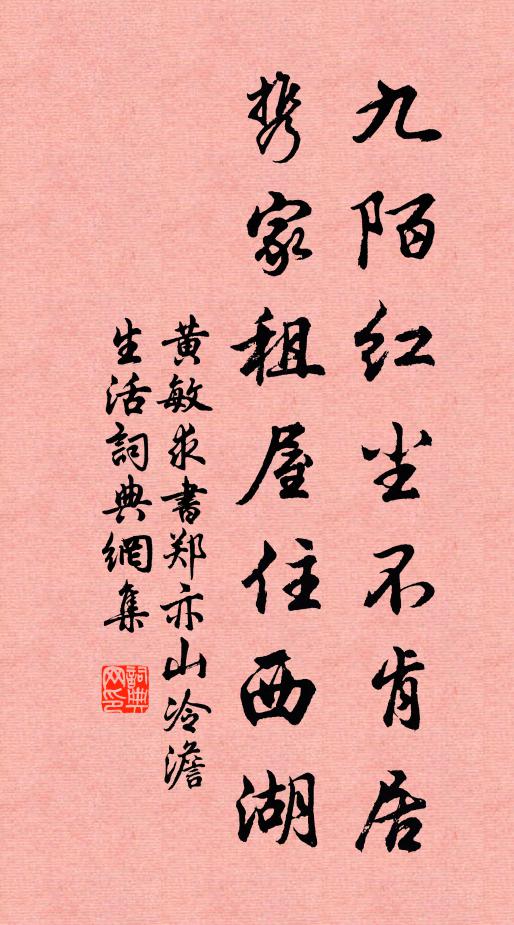 九陌红尘不肯居
携家租屋住西湖
黄敏求书郑亦山冷澹
生活詞典網集
詞典
网印